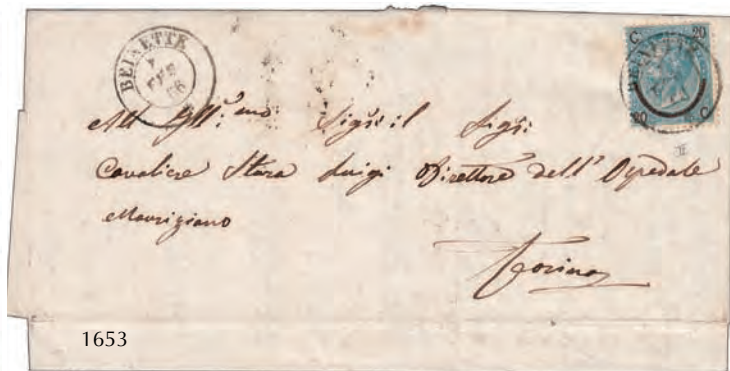 BEINETTE
7
FEB
66
C 20
BEINETTE
20 C
All' Ill.mo Sigr il Sigr
Cavaliere Stara Luigi Direttore dell' Ospedale
Mauriziano
Torino
II
1653